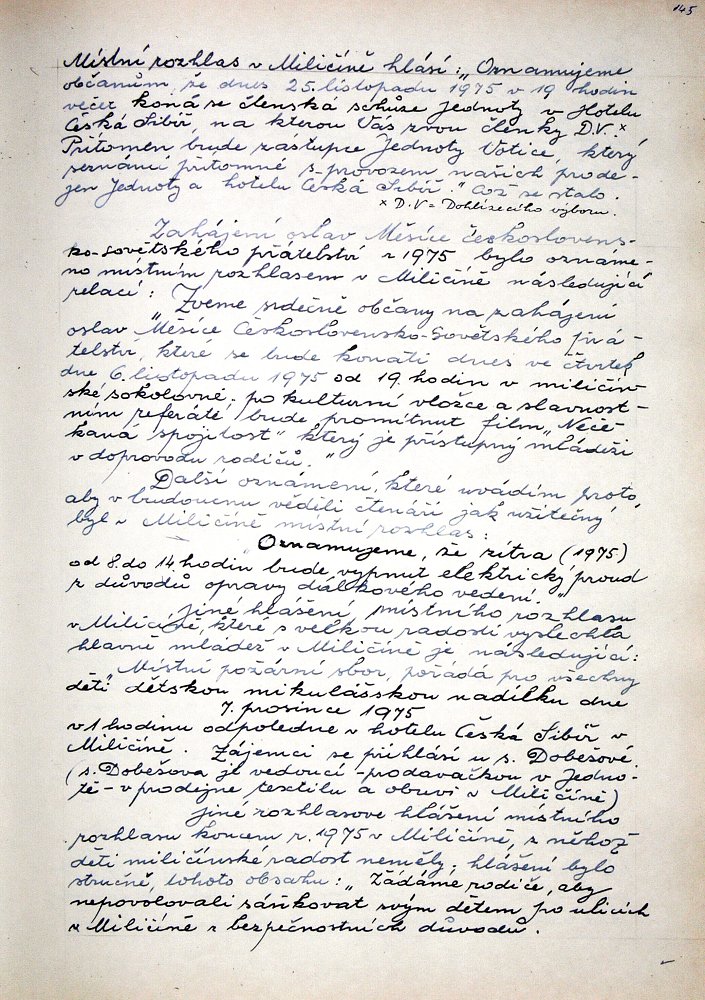 145
Místní rozhlas v Miličíně hlásí: „Oznamujeme
občanům, že dnes 25. listopadu 1975 v 19 hodin
večer koná se členská schůze Jednoty v Hotelu
Česká Sibiř, na kterou Vás zvou členky D.V.ˣ
Přítomen bude zástupce Jednoty Votice, který
seznámí přítomné s provozem našich prode-
jen Jednoty a hotelu Česká Sibiř." Což se stalo.
x D.V = Dohlížecího výboru.
Zahájení oslav Měsíce českosloven-
sko-sovětského přátelství r 1975 bylo oznáme-
no místním rozhlasem v Miličíně následující
relací: „Zveme srdečně občany na zahájení
oslav „Měsíce Československo-Sovětského přá-
telství, které se bude konati dnes ve čtvrtek
dne 6. listopadu 1975 od 19. hodin v miličín-
ské sokolovně. po kulturní vložce a slavnost-
ním referátě bude promítnut film „Neče-
kaná spojitost" který je přístupný mládeži
v doprovodu rodičů."
Další oznámení, které uvádím proto,
aby v budoucnu věděli čtenáři jak užitečný
byl v Miličíně místní rozhlas:
„Oznamujeme, že zítra (1975)
od 8. do 14 hodin bude vypnut elektrický proud
z důvodů opravy dálkového vedení."
Jiné hlášení místního rozhlasu
v Miličíně, které s velkou radostí vyslechla
hlavně mládež v Miličíně je následující:
„Místní požární sbor, pořádá pro všechny
děti dětskou mikulášskou nadílku dne
7. prosince 1975
v 1 hodinu odpoledne v hotelu Česká Sibiř v
Miličíně. Zájemci se přihlásí u s. Dobešové.
(s. Dobešova je vedoucí - prodavačkou v Jedno-
tě - v prodejne textilu a obuvi v Miličíně)
Jiné rozhlasove hlášení místního
rozhlasu koncem r. 1975 v Miličíně, z něhož
děti miličínské radost neměly. hlášení bylo
stručné, tohoto obsahu: „Žádáme rodiče, aby
nepovolovali sáňkovat svým dětem po ulicích
v Miličíně z bezpečnostních důvodů.